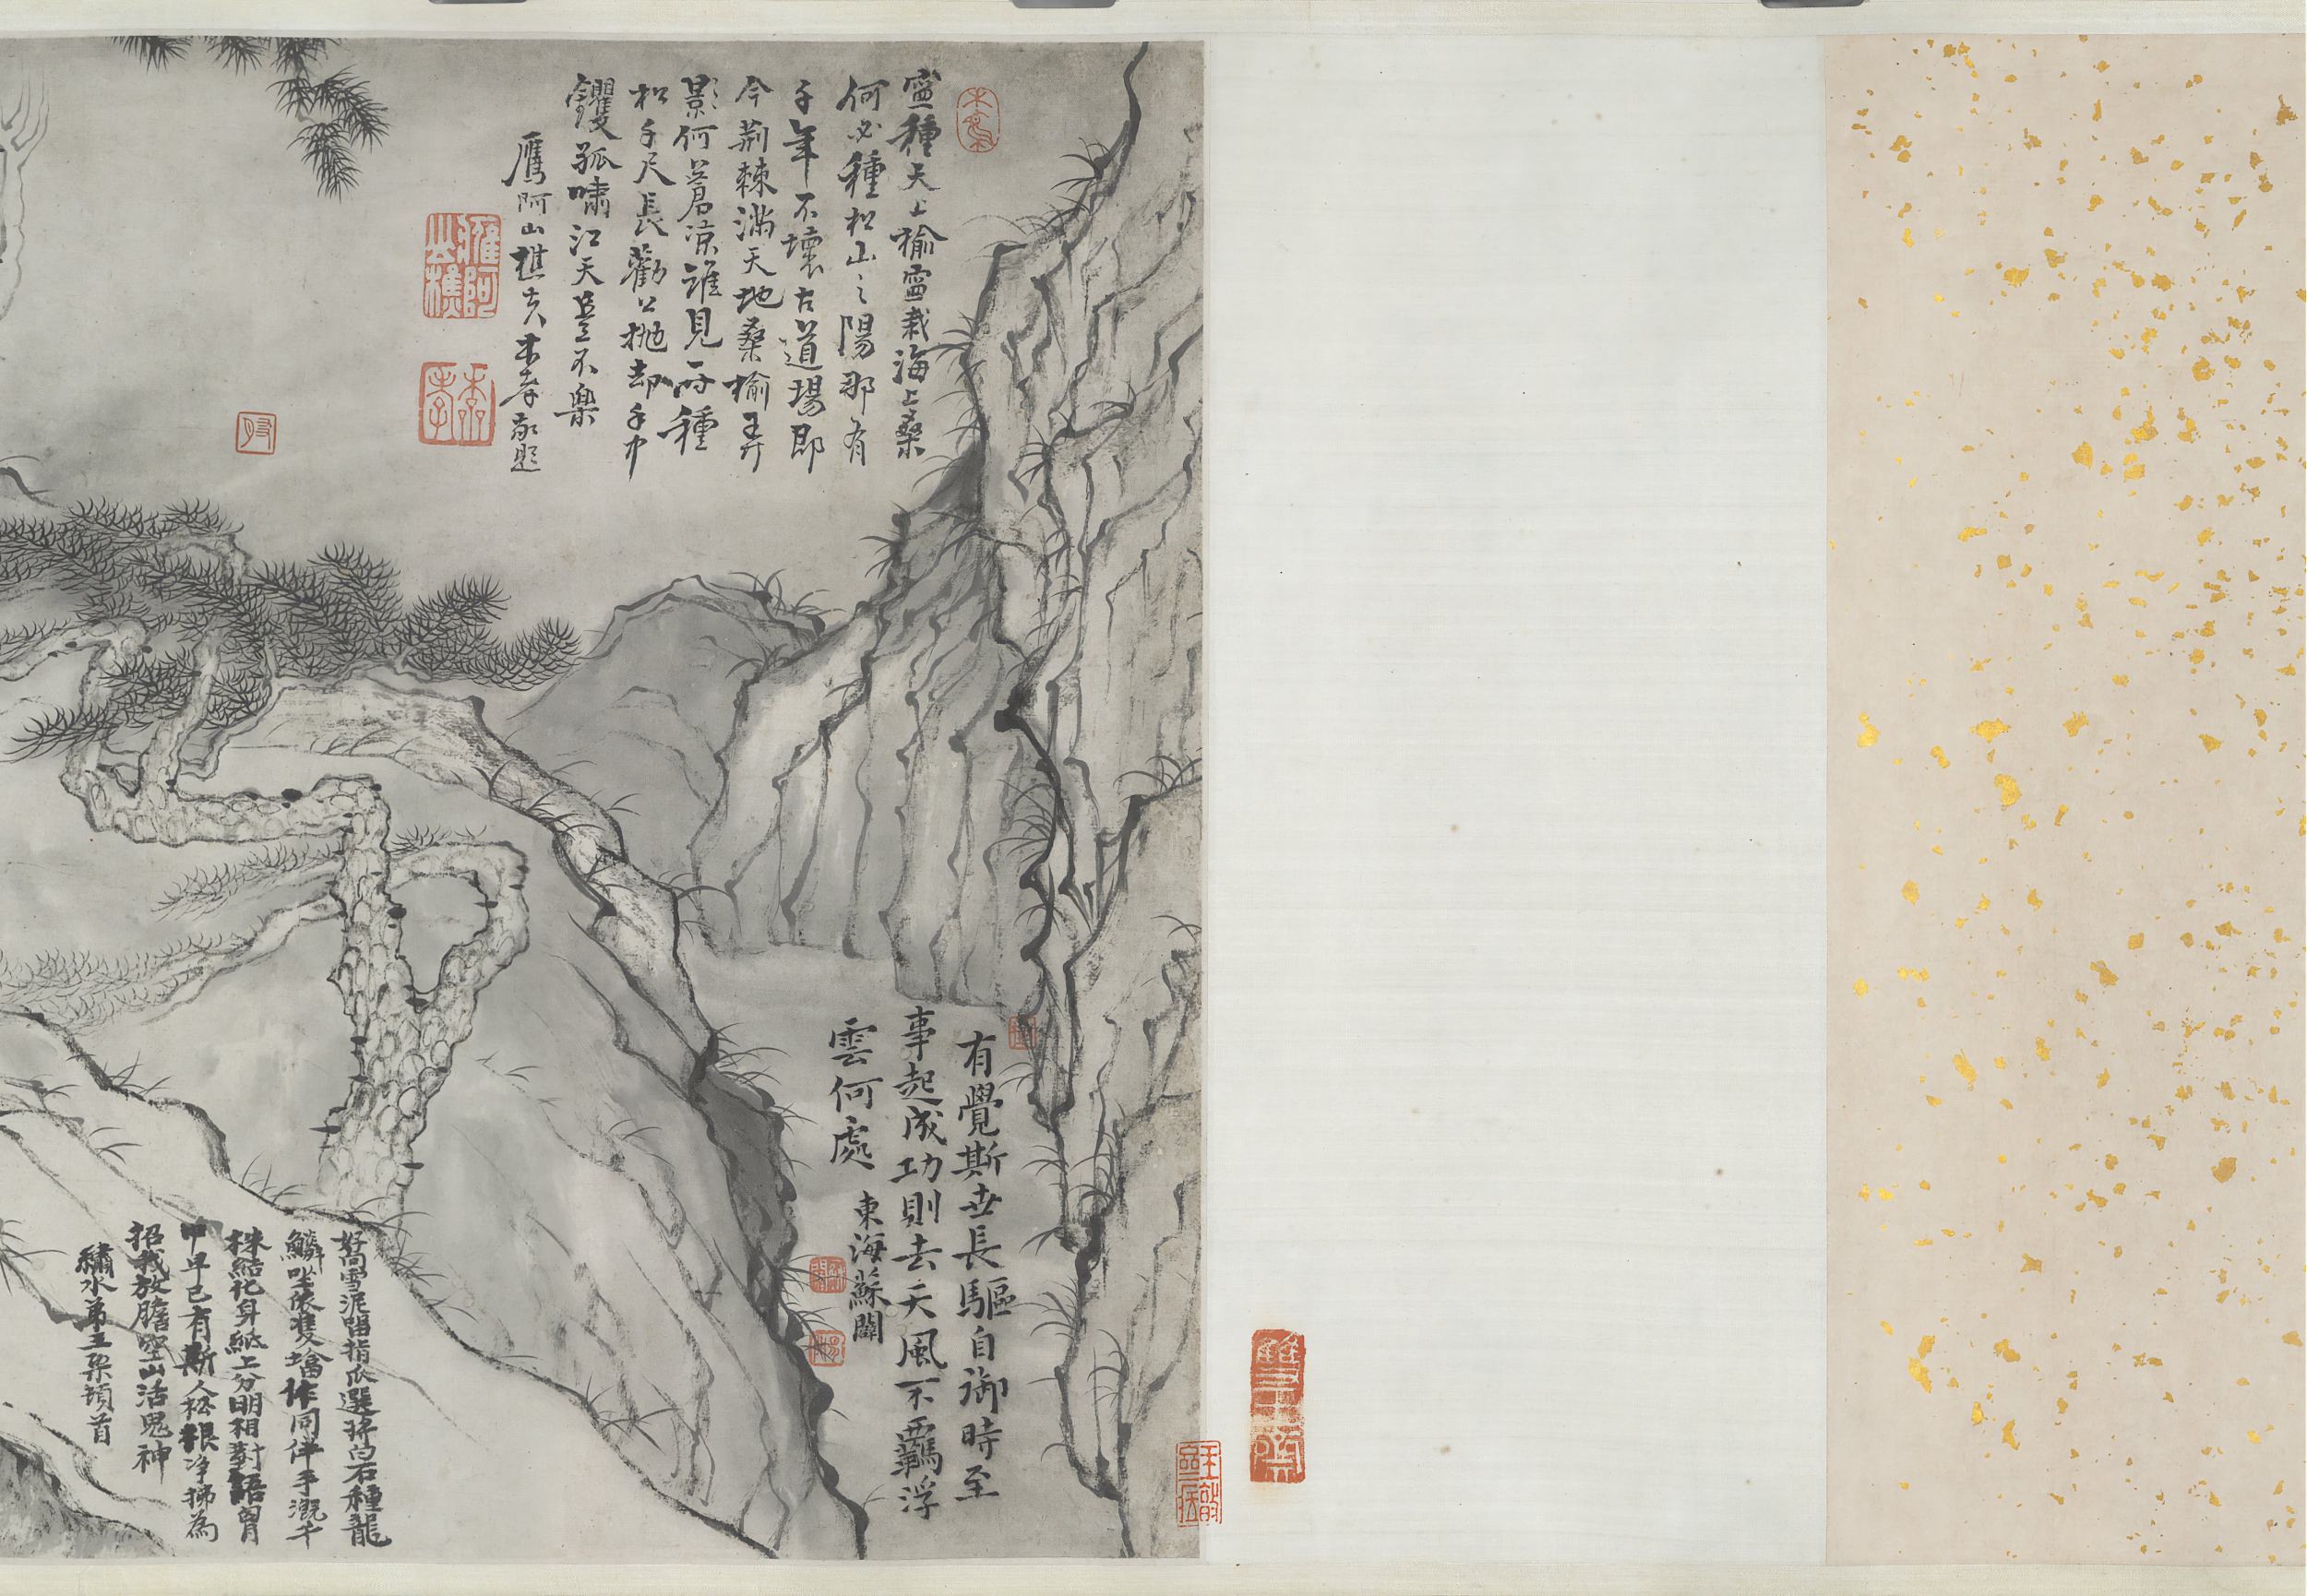 寧種天上榆寧栽海上桑
何必種松山之陽那有
千年不壞古道場即
今荊棘滿天地桑榆弄
影何蒼涼誰見一時種
松千尺長勸公拋却手中
钁孤嘯江天豈不樂
鴈阿山樵夫李
有覺斯世長驅自御時至
事起成功則去天風不羈浮
雲何處
東海蘇闢
好向雪泥留指爪選將白石種龍
鱗坐依雙 作同伴手溉千
株結化身紙上分明相對語胷
中早已有斯人松根淨掃為
招我放膽空山活鬼神
繡水弟王 頓首